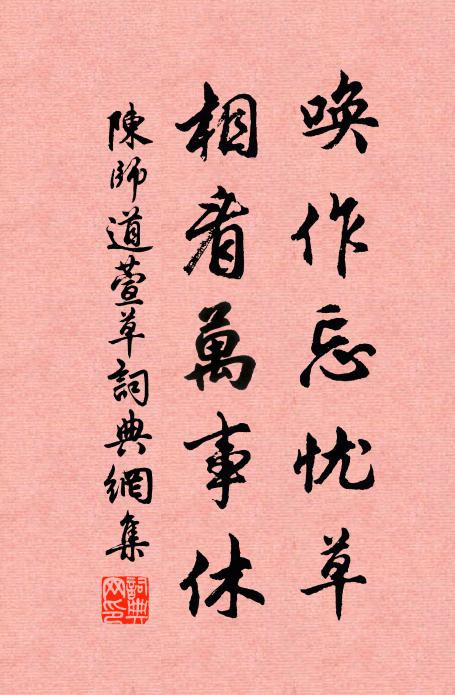 唤作忘忧草
相看萬事休
陳師道萱草詞典網集
詞典网印